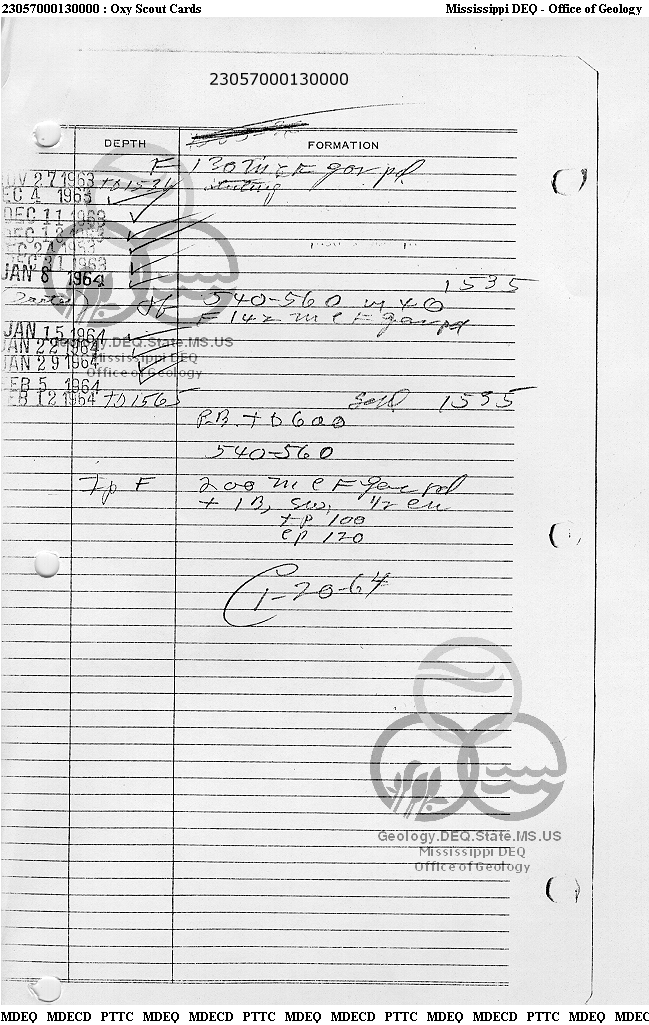 23057000130000 : Oxy Scout Cards Mississippi DEQ - Office of Geology
23057000130000
DEPTH FORMATION
F 130 MCF gas pd
NOV 27 1963 TD 1534 testing
DEC 4 1963
DEC 11 1963
DEC 18 1963
DEC 24 1963
DEC 31 1963
JAN 8 1964
1535
Pf 540-560 w 40
F 142 MCF gas pd
JAN 15 1964
JAN 22 1964
JAN 29 1964
FEB 5 1964
FEB 12 1964 TD 1565 1535
P.B. TD 600
540-560
Ip F 200 MCF gas pd
+ 1 B, SW, 1/2 ch
tp 100
cp 120
C 1-20-64
Geology.DEQ.State.MS.US
Mississippi DEQ
Office of Geology
Geology.DEQ.State.MS.US
Mississippi DEQ
Office of Geology
MDEQ MDECD PTTC MDEQ MDECD PTTC MDEQ MDECD PTTC MDEQ MDECD PTTC MDEQ MDEC